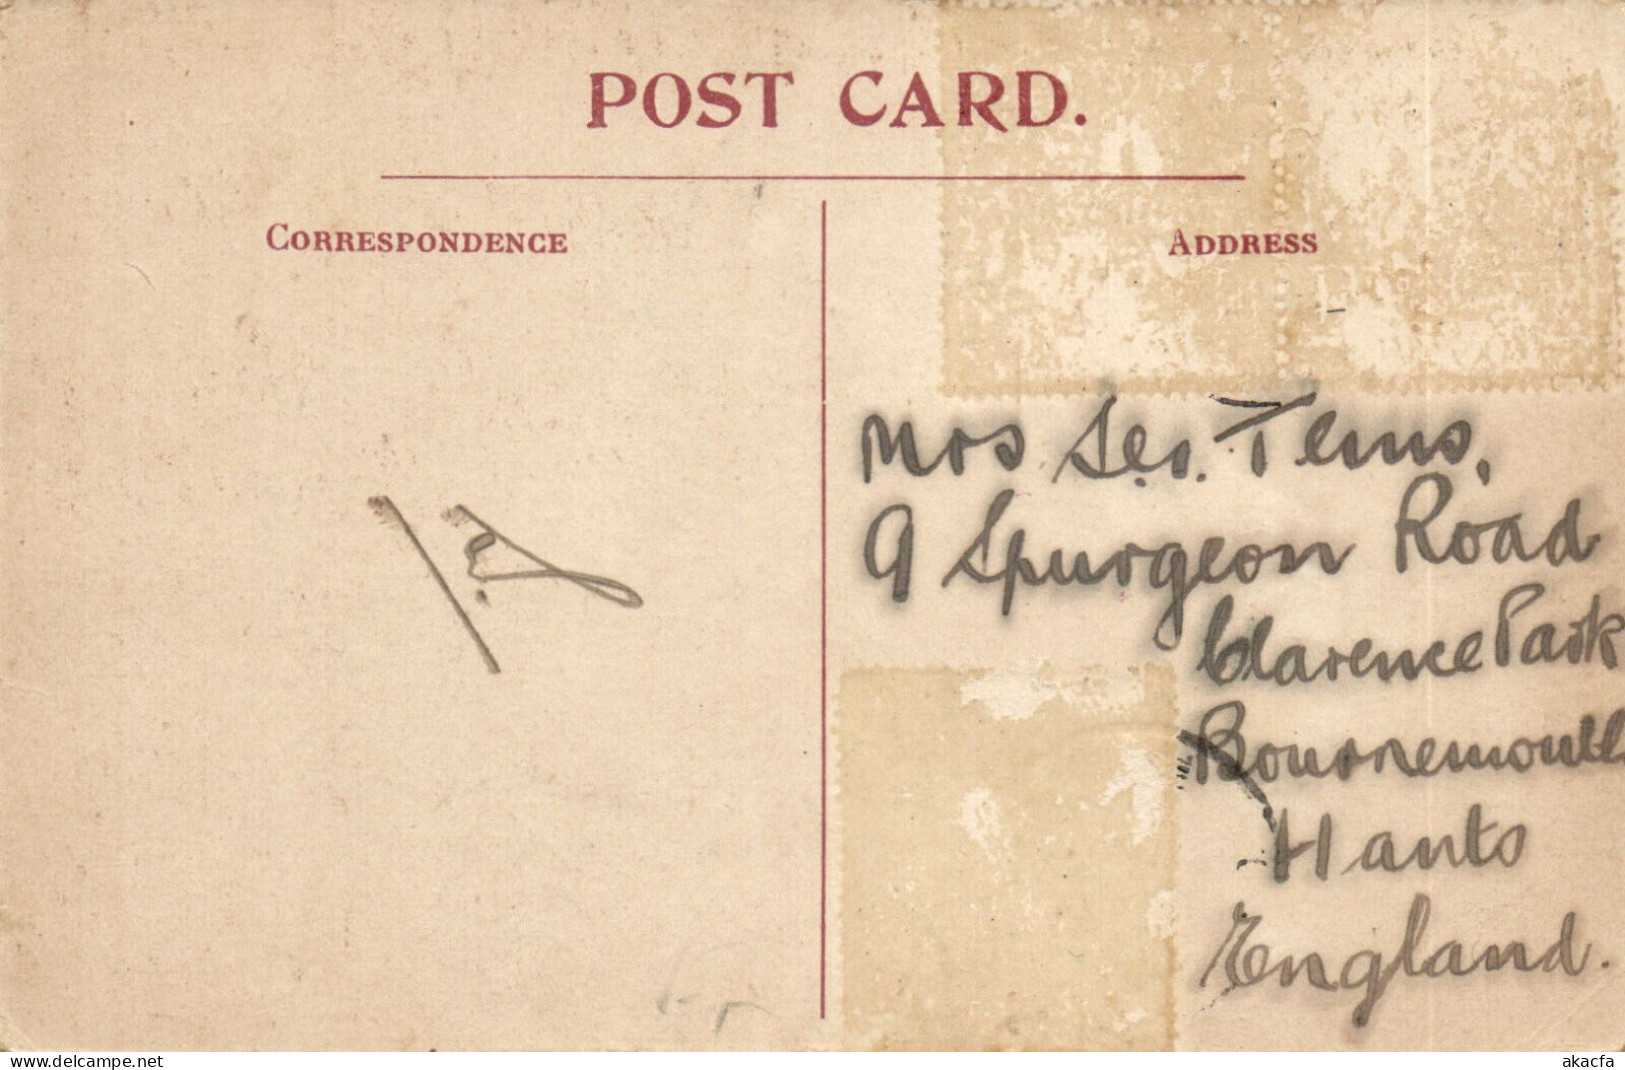 POST CARD.
CORRESPONDENCE
ADDRESS
Mrs Tems,
9 Spurgeon Road
Clarence Park
Bournemouth
Hants
England.
www.delcampe.net
akacfa